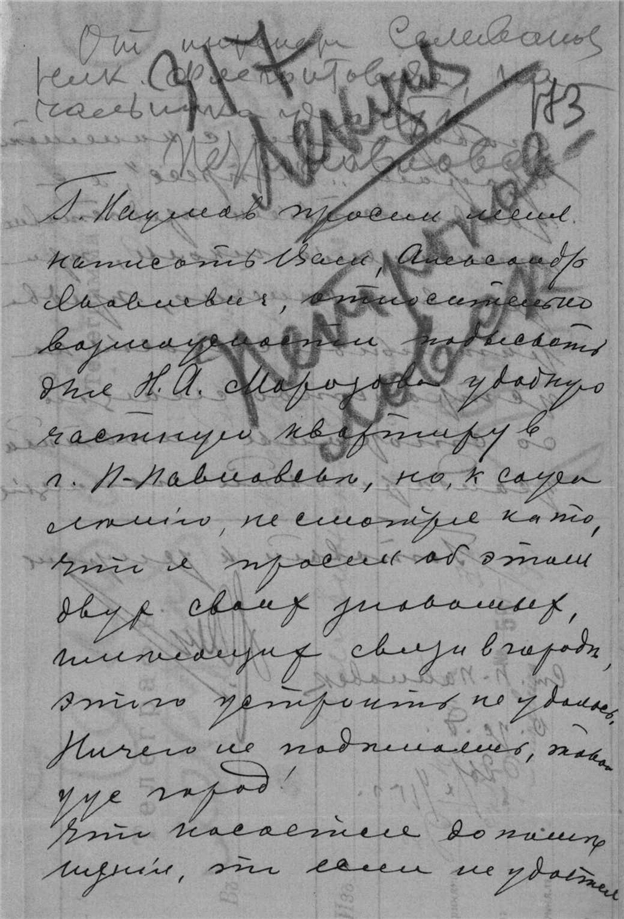 От инженера Селиванова
Ник. Феоктистовича, на
чальника участка
Петропавловск
317
Лекция
173
Петропавловск
Г. Наумов просил меня
написать Вам, Александр
Яковлевич, относительно
возможности подыскать
для Н. А. Морозова удобную
частную квартиру в
г. П-Павловскѣ, но, к сожа
лѣнію, не смотря на то,
что я просил об этом
двух своих знакомых,
имѣющих связи в городѣ,
этого устроить не удалось.
Ничего не подѣлаешь, таков
уж город!
Что касается до помѣ
щенія, то если не удастся